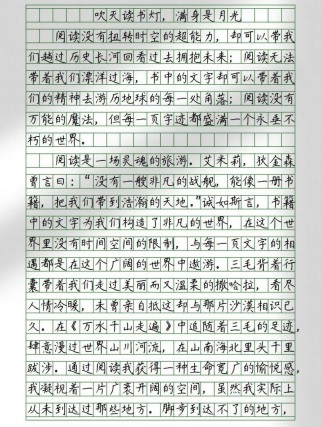 吹灭读书灯，满身是月光
阅读没有扭转时空的超能力，却可以带我
们越过历史长河回看过去拥抱未来；阅读无法
带着我们漂洋过海，书中的文字却可以带着我
们的精神去游历地球的每一处角落；阅读没有
万能的魔法，但每一页字迹都盛满一个永垂不
朽的世界。
阅读是一场灵魂的旅游。艾米莉，狄金森
曾言曰：“没有一艘非凡的战舰，能像一册书
籍，把我们带到浩瀚的天地。”诚如斯言，书籍
中的文字为我们构造了非凡的世界，在这个世
界里没有时间空间的限制，与每一页文字的相
遇都是在这个广阔的世界中遨游。三毛背着行
囊带着我们走过美丽而又温柔的撒哈拉，看尽
人情冷暖，未曾亲自抵这却与那片沙漠相识已
久。在《万水千山走遍》中追随着三毛的足迹，
肆意漫过世界山川河流，在山南海北里头千里
跋涉。通过阅读我获得一种生命宽广的愉悦感，
我凝视着一片广袤开阔的空间，虽然我实际上
从未到达过那些地方。脚步到达不了的地方，